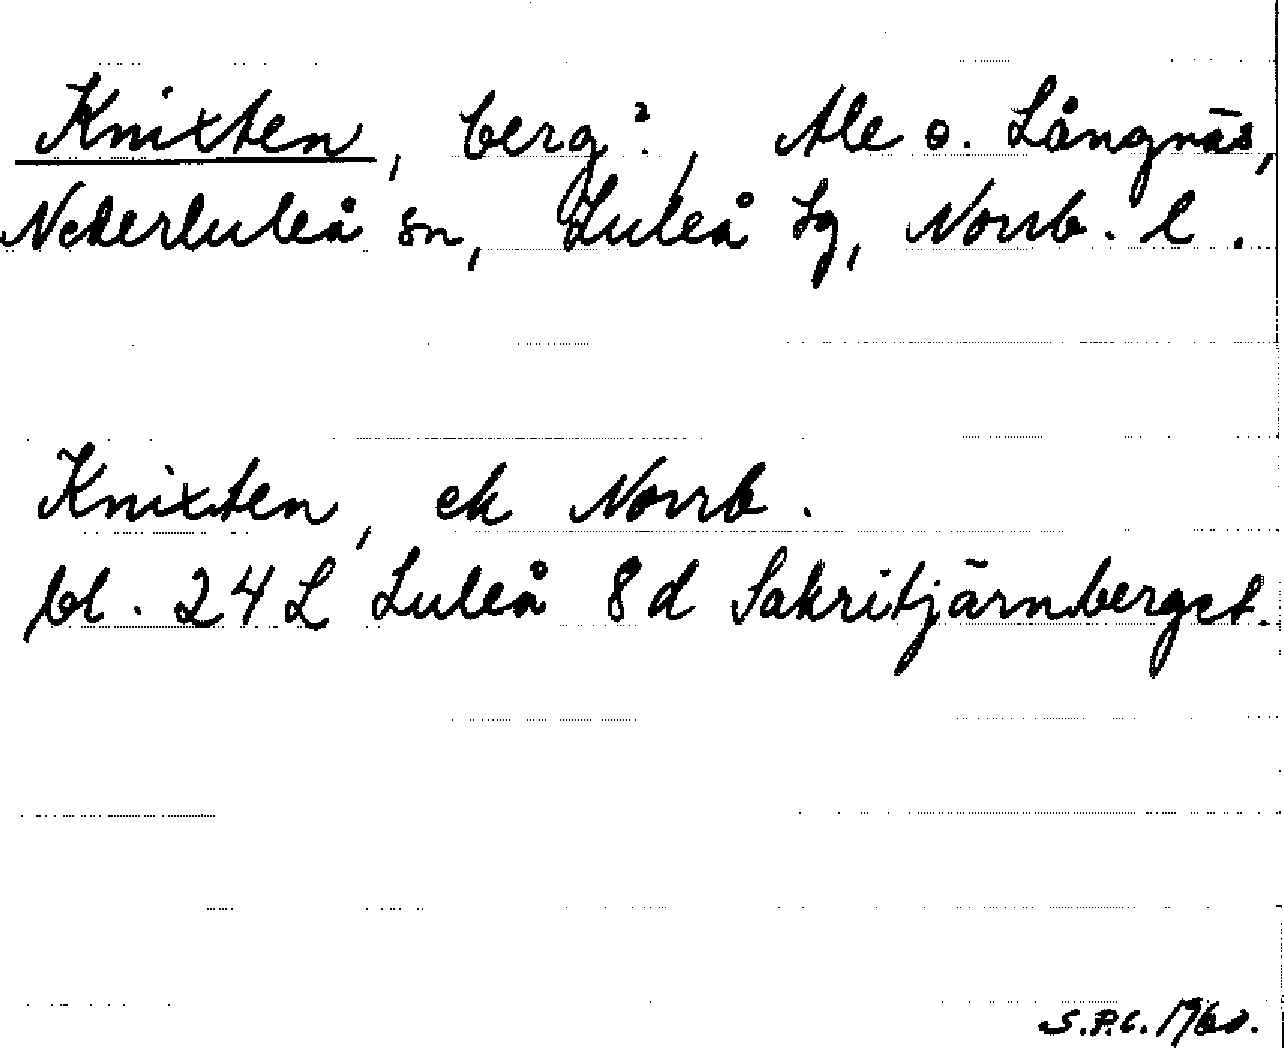 Knixten, berg?, Ale o. Långnäs,
Nederluleå sn, Luleå tg, Norrb. l.
Knixten, ek Norrb.
bl. 24 L Luleå 8d Sakritjärnberget.
S.P.C. 1960.